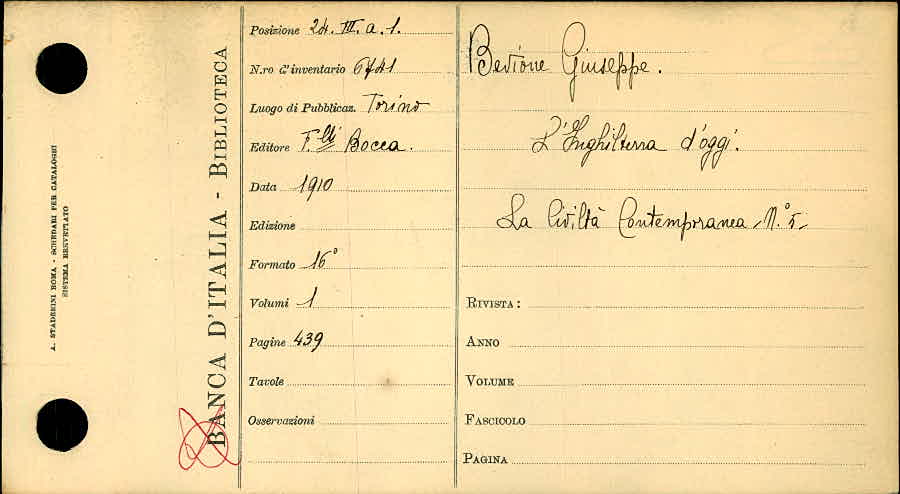 A. STADERINI ROMA - SCHEDARI PER CATALOGHI
SISTEMA BREVETTATO
BANCA D'ITALIA - BIBLIOTECA
Posizione 24. III. a. 1.
N.ro d'inventario 6741
Luogo di Pubblicaz. Torino
Editore F.lli Bocca.
Data 1910
Edizione
Formato 16°
Volumi 1
Pagine 439
Tavole
Osservazioni
Bevione Giuseppe.
L'Inghilterra d'oggi.
La Civiltà Contemporanea - N.° 5 -
RIVISTA:
ANNO
VOLUME
FASCICOLO
PAGINA